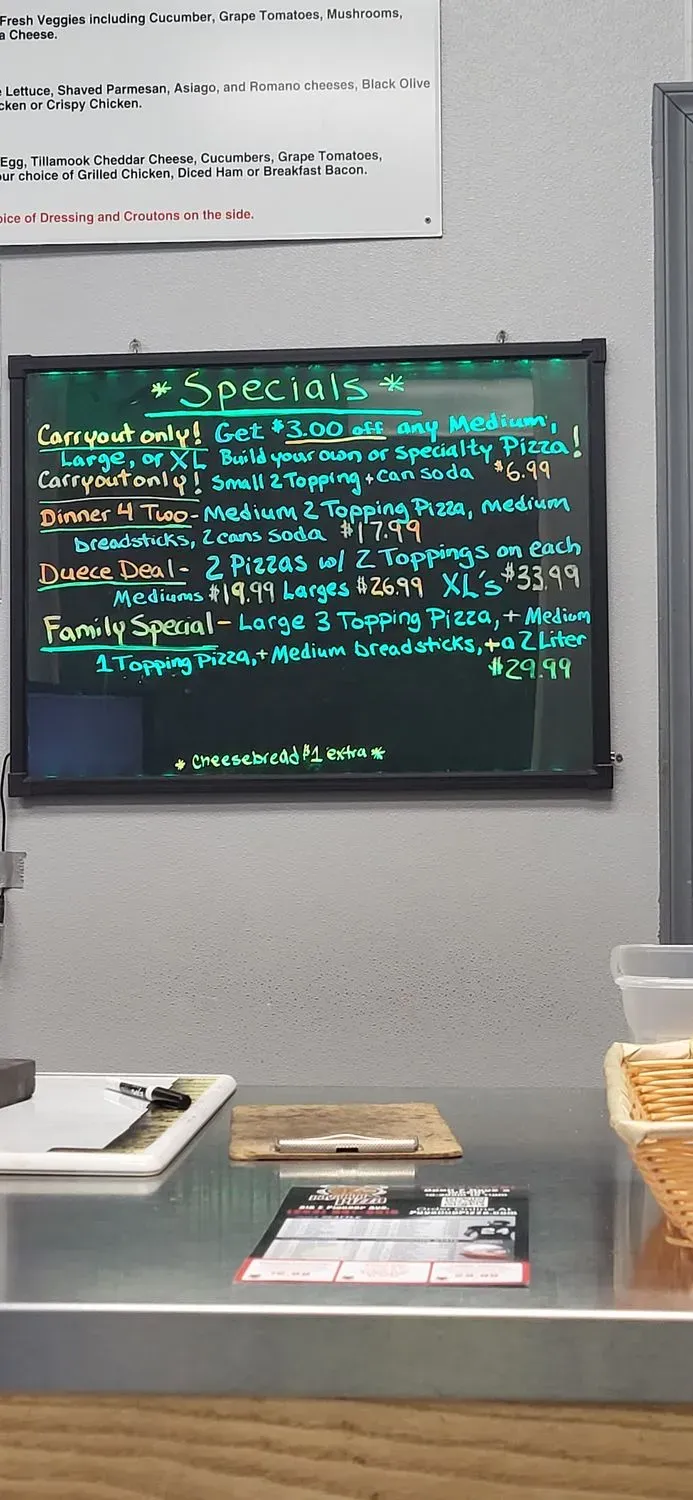 Fresh Veggies including Cucumber, Grape Tomatoes, Mushrooms,
a Cheese.
Lettuce, Shaved Parmesan, Asiago, and Romano cheeses, Black Olive
cken or Crispy Chicken.
Egg, Tillamook Cheddar Cheese, Cucumbers, Grape Tomatoes,
our choice of Grilled Chicken, Diced Ham or Breakfast Bacon.
oice of Dressing and Croutons on the side.
* Specials *
Carryout only! Get $3.00 off any Medium,
Large, or XL Build your own or specialty Pizza!
Carryout only! Small 2 Topping + can soda $6.99
Dinner 4 Two - Medium 2 Topping Pizza, medium
breadsticks, 2 cans soda $17.99
Duece Deal - 2 Pizzas w/ 2 Toppings on each
Mediums $19.99 Larges $26.99 XL's $33.99
Family Special - Large 3 Topping Pizza, + Medium
1 Topping Pizza, + Medium breadsticks, + a 2 Liter
$29.99
* Cheesebread $1 extra *
Pizza
Order Online At